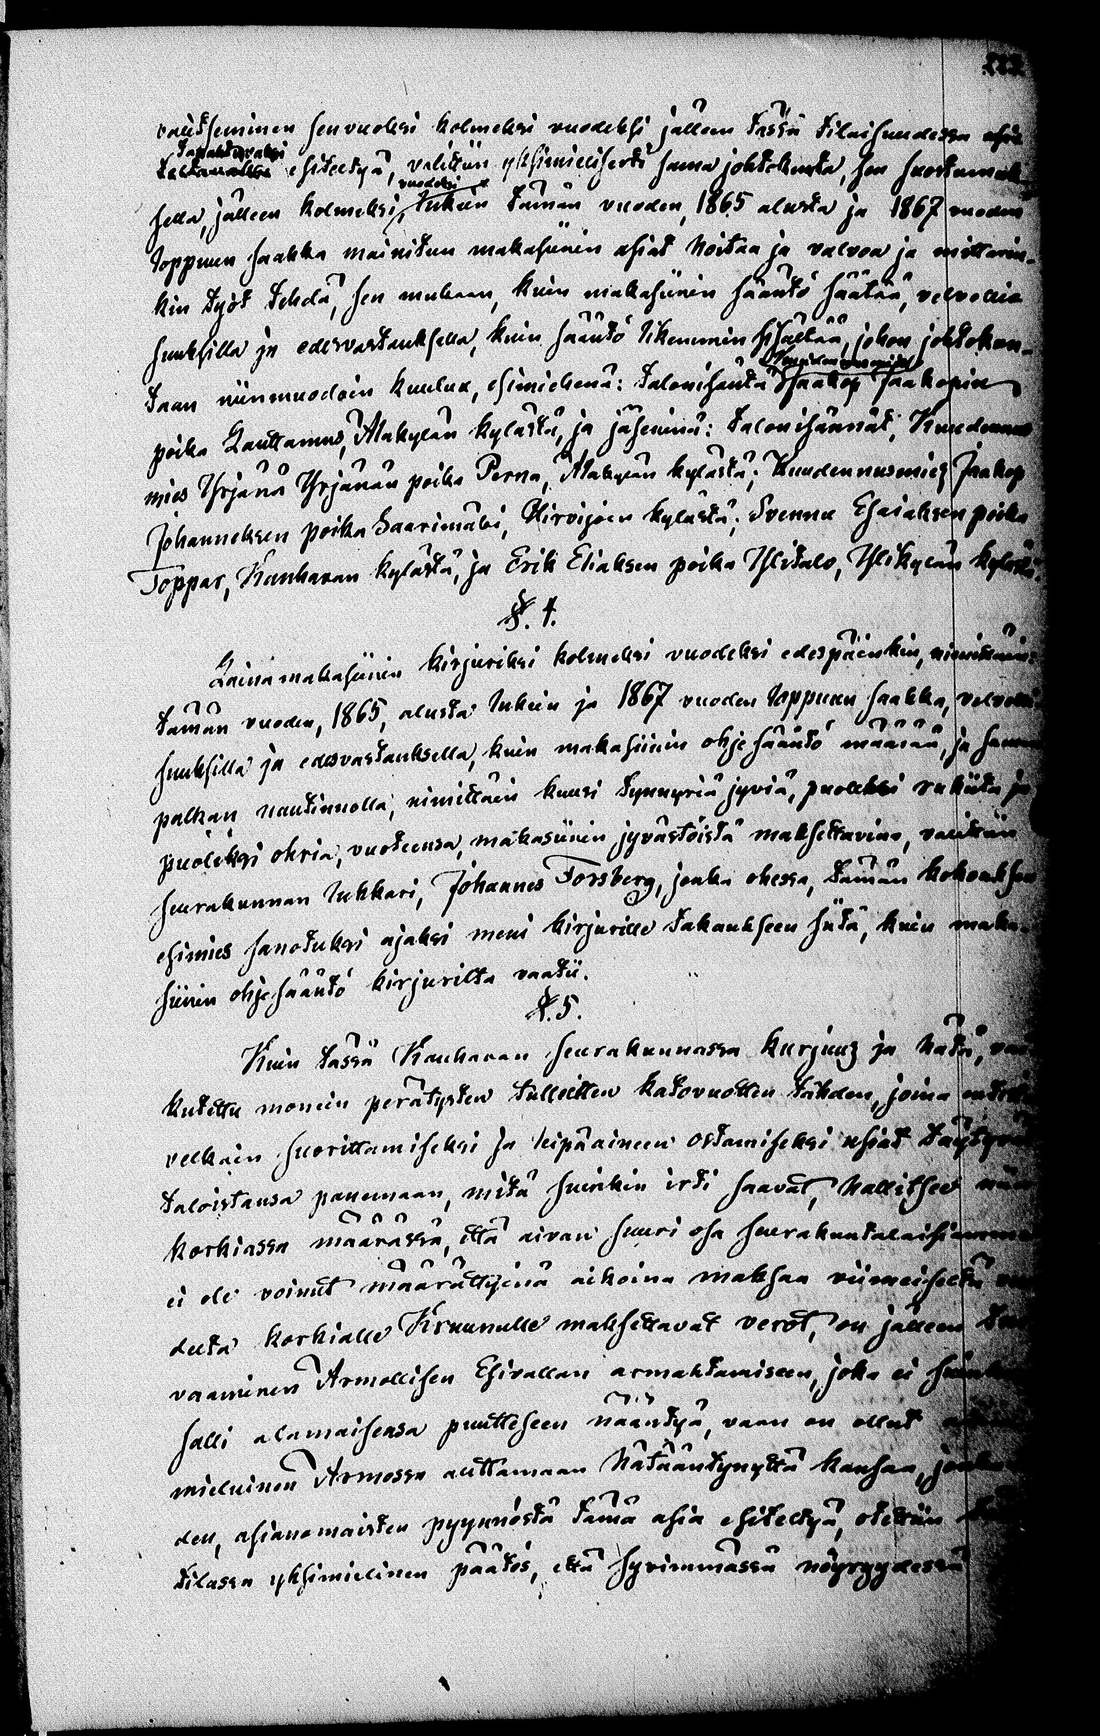 valitseminen senvuoksi kolmeksi vuodeksi jälleen tässä tilaisuudessa
tapahtuvaksi
esiteltyä, valittiin yksimielisesti sama johtokunta, sen suostumuk-
vuodeksi
sella, jälleen kolmeksi, lukien tämän vuoden, 1865 alusta ja 1867 vuoden
loppuun saakka mainitun makasiinin asiat hoitaa ja valvoa ja mittarin-
kin työt tehdä, sen mukaan, kuin makasiinin sääntö säätää, velvolli-
suuksilla ja edesvastauksella, kuin sääntö likemmin sisältää, johon johtokun-
Kuudennusmies
taan niinmuodoin kuuluu, esimiehenä: talonisäntä Jaakop Jaakopin
poika Lauttamus, Alakylän kylästä, ja jäseninä: talonisännät, Kuudennus
mies Yrjänä Yrjänän poika Perna, Alakylän kylästä; Kuudennusmies Jaakop
Johanneksen poika Saarimäki, Hirvijoen kylästä; Svennu Esaiaksen poika
Toppar, Kauhavan kylästä, ja Erik Eliaksen poika Ylitalo, Ylikylän kylästä.
§. 4.
Lainamakasiinin kirjuriksi kolmeksi vuodeksi edespäinkin, nimittäin
tämän vuoden, 1865, alusta lukien ja 1867 vuoden loppuun saakka, velvolli-
suuksilla ja edesvastauksella, kuin makasiinin ohjesääntö määrää, ja saman
palkan nautinnolla, nimittäin kuusi tynnyriä jyviä, puoleksi rukiita ja
puoleksi ohria, vuoteensa, makasiinin jyvästöistä maksettavina, valittiin
seurakunnan lukkari, Johannes Forsberg, jonka ohessa, tämän kokouksen
esimies sanotuksi ajaksi meni kirjurille takaukseen siitä, kuin maka-
siinin ohjesääntö kirjurilta vaatii.
§. 5.
Kuin tässä Kauhavan seurakunnassa kurjuus ja hätä,
kutettu monein perätysten tulleitten katovuotten tähden, joina
velkain suorittamiseksi ja leipäaineen ostamiseksi
taloistansa panemaan, mitä suinkin irti saavat, hallitsee
korkiassa määrässä, että aivan suuri osa seurakuntalaisistamme
ei ole voinut määrättyinä aikoina maksaa viimeiseltä
delta korkialle Kruunulle maksettavat verot, on jälleen
vaaminen Armollisen Esivallan armahtamiseen, joka ei
salli alamaisensa puutteseen nääntyä, vaan on ollut
mieluinen Armossa auttamaan hätääntynyttä kansaa,
den, asianomaisten pyynnöstä tämä asia esiteltyä, otettiin
tilassa yksimielinen päätös, että syvimmässä nöyryydessä